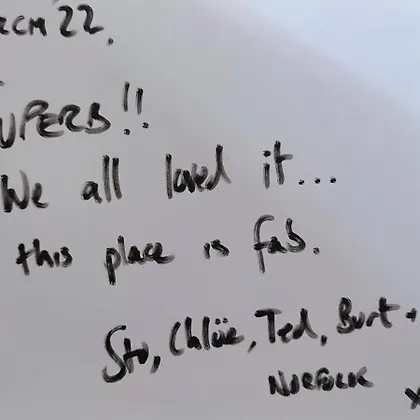 RCH '22.
UPERB!!
We all loved it...
this place is fab.
Stu, Chlöe, Ted, Burt +
NORFOLK x